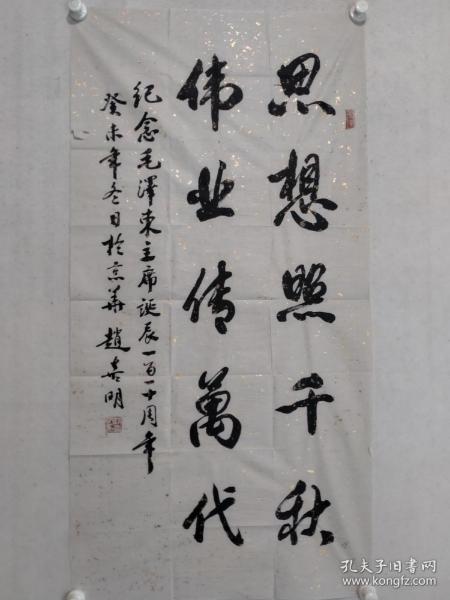 思想照千秋
伟业传萬代
纪念毛澤东主席诞辰一百一十周年
癸未年冬日於京华 趙喜明
孔夫子旧书网
www.kongfz.com